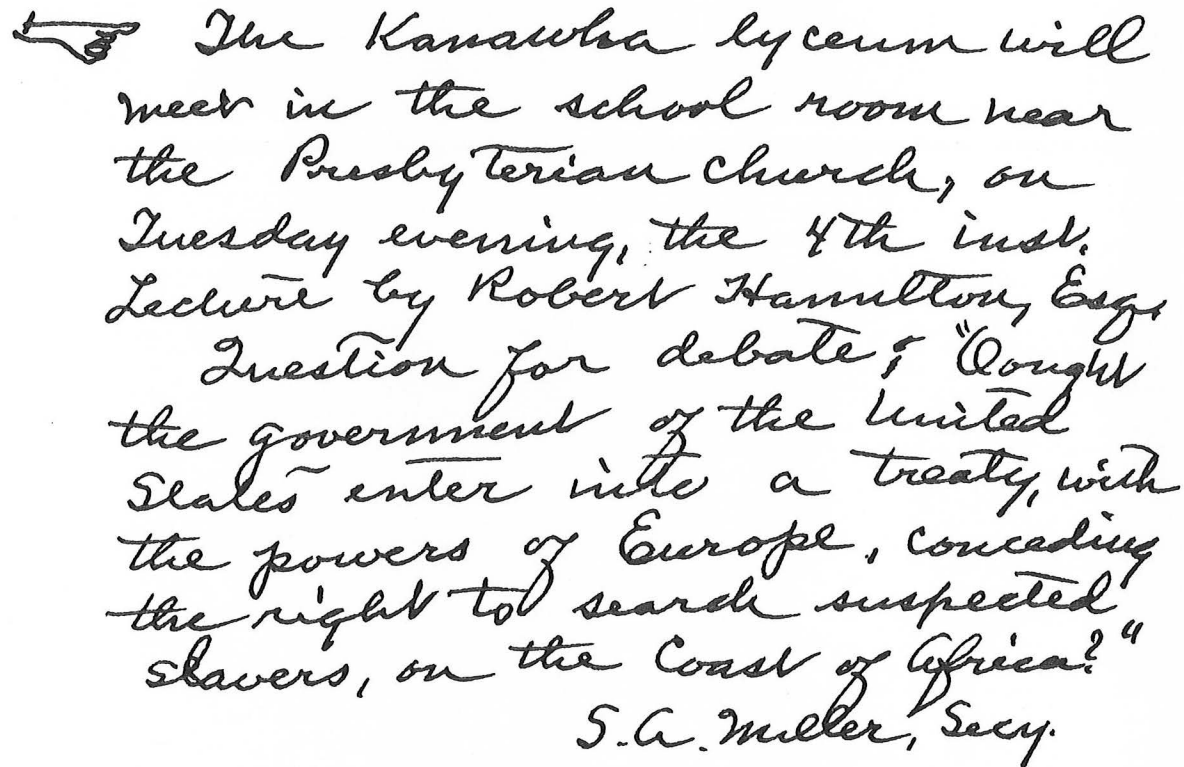 ☞ The Kanawha lyceum will
meet in the school room near
the Presbyterian church, on
Tuesday evening, the 4th inst.
Lecture by Robert Hamilton, Esq.
Question for debate; "Oought
the government of the United
States enter into a treaty, with
the powers of Europe, conceding
the right to search suspected
slavers, on the Coast of Africa?"
S. A. Miller, Secy.